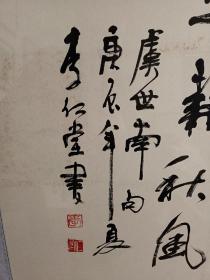 藉秋風
虞世南句
庚辰年夏
李仁堂書